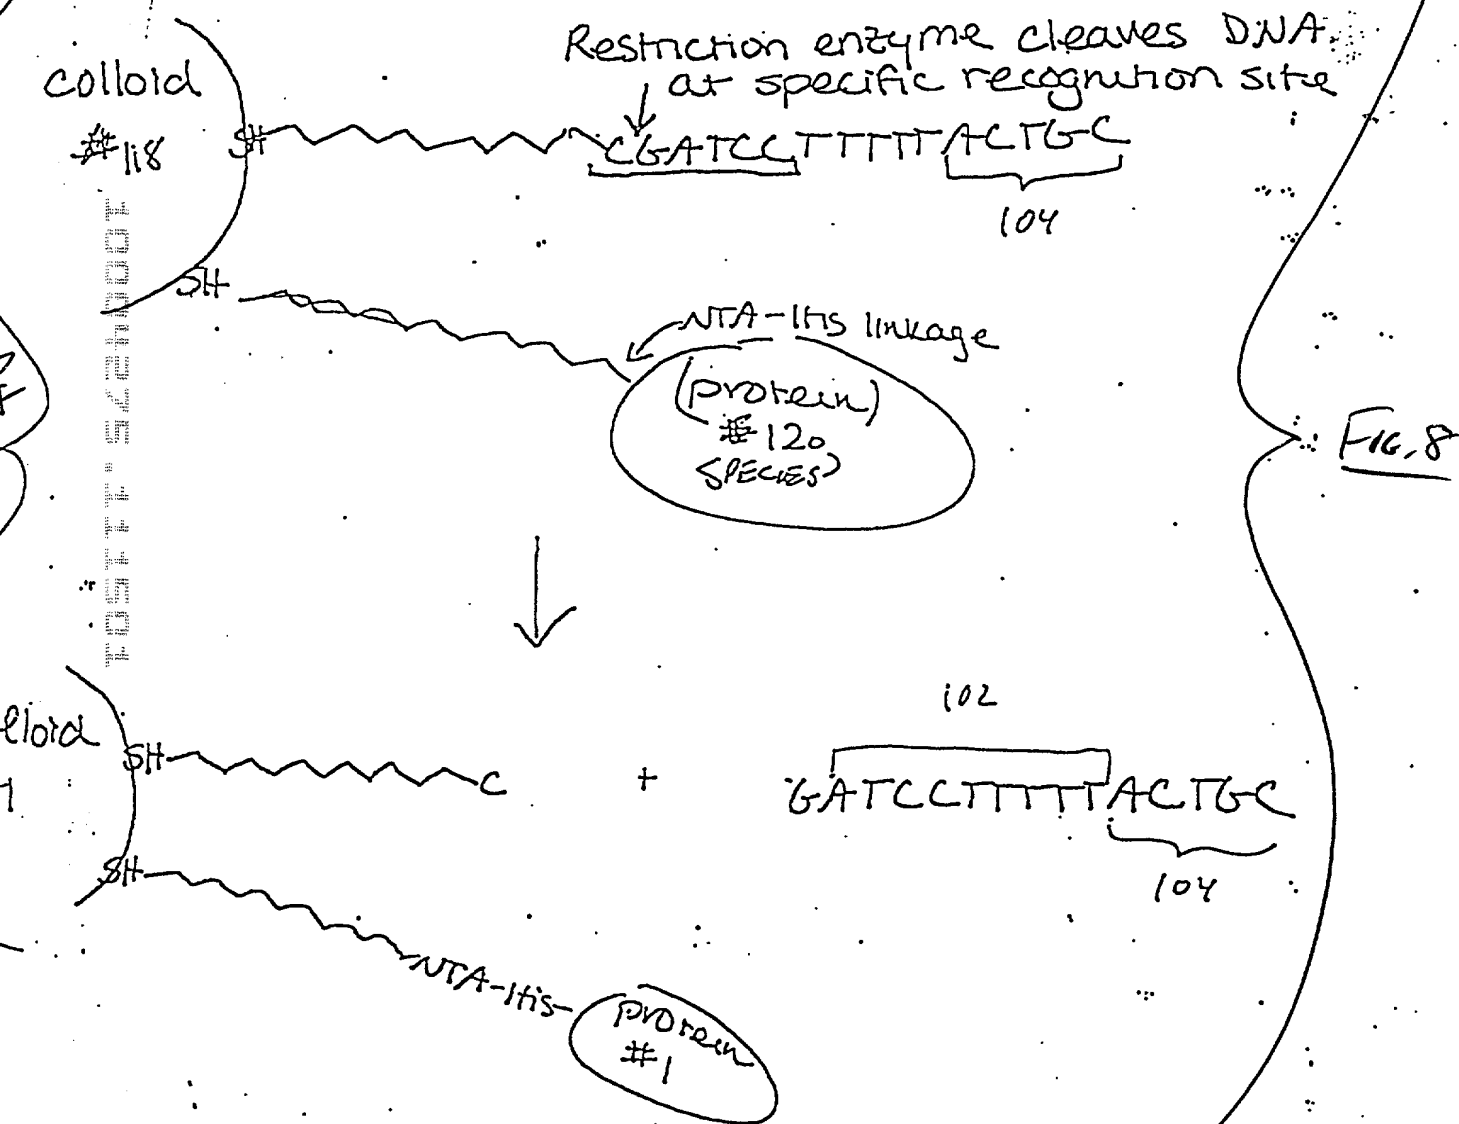 Restriction enzyme cleaves DNA
at specific recognition site
colloid
#118
SH
CGATCCTTTTTACTGC
104
SH
NTA-His linkage
(protein)
#120
SPECIES)
FIG. 8
102
lloid
SH
C
+
GATCCTTTTTACTGC
104
1
SH
NTA-His-
protein
#1